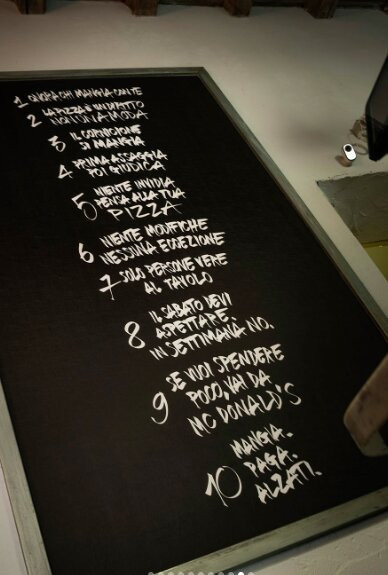 1 ONORA CHI MANGIA CON TE
2 LA PIZZA È UN DIRITTO
NON UNA MODA
3 IL CORNICIONE
SI MANGIA
4 PRIMA ASSAGGIA
POI GIUDICA
5 NIENTE INVIDIA
PENSA ALLA TUA
PIZZA
6 NIENTE MODIFICHE
NESSUNA ECCEZIONE
7 SOLO PERSONE VERE
AL TAVOLO
8 IL SABATO DEVI
ASPETTARE.
IN SETTIMANA NO.
9 SE VUOI SPENDERE
POCO, VAI DA
MC DONALD'S
10 MANGIA.
PAGA.
ALZATI.